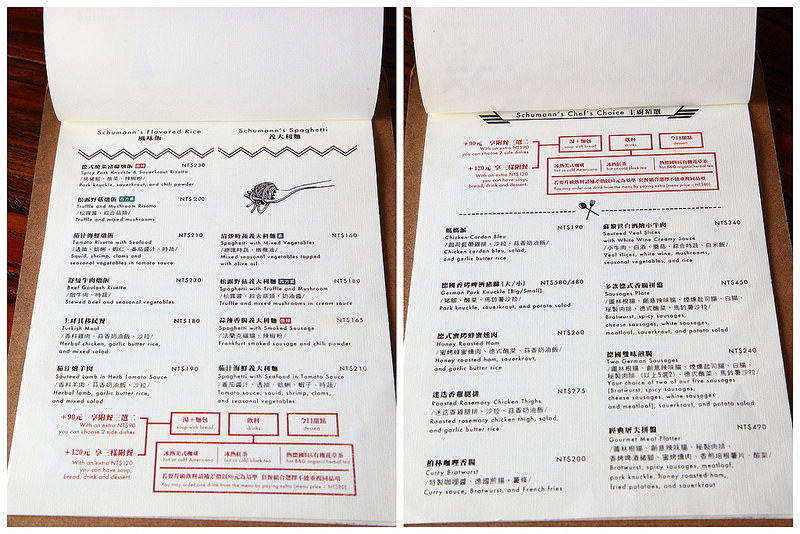 Schumann's Flavored Rice
風味飯
Schumann's Spaghetti
義大利麵
德式酸菜豬腳燉飯 NT$230
Spicy Pork Knuckle & Sauerkraut Risotto
/烤豬腳、酸菜、辣椒粉/
Pork knuckle, sauerkraut, and chili powder
松露野菇燉飯 NT$200
Truffle and Mushroom Risotto
/松露醬、綜合菇類/
Truffle and mixed mushrooms
茄汁海鮮燉飯 NT$210
Tomato Risotto with Seafood
/透抽、蛤蜊、蝦仁、番茄醬汁、時蔬/
Squid, shrimp, clams and
seasonal vegetables in tomato sauce
舒曼牛肉燉飯 NT$230
Beef Goulash Risotto
/燉牛肉、時蔬/
Stewed beef and seasonal vegetables
土耳其移民餐 NT$180
Turkish Meal
/香料雞肉、蒜香奶油飯、沙拉/
Herbal chicken, garlic butter rice,
and mixed salad
茄汁燴羊肉 NT$190
Sauteed Lamb in Herb Tomato Sauce
/香料羊肉、蒜香奶油飯、沙拉/
Herbal lamb, garlic butter rice,
and mixed salad
清炒時蔬義大利麵 NT$160
Spaghetti with Mixed Vegetables
/總匯時蔬、橄欖油/
Mixed seasonal vegetables topped
with olive oil
松露野菇義大利麵 NT$180
Spaghetti with Truffle and Mushroom
/松露醬、綜合菇類、奶油醬/
Truffle and mixed mushrooms in cream sauce
蒜辣香腸義大利麵 NT$165
Spaghetti with Smoked Sausage
/法蘭克福腸、辣椒粉/
Frankfurt smoked sausage and chili powder
茄汁海鮮義大利麵 NT$210
Spaghetti with Seafood in Tomato Sauce
/番茄醬汁、透抽、蛤蜊、蝦子、時蔬/
Tomato sauce, squid, shrimp, clams,
and seasonal vegetables
+90元 享附餐三選二
With an extra NT$90
you can choose 2 side dishes
+120元 享三樣附餐
With an extra NT$120
you can have soup,
bread, drink and dessert.
湯+麵包
soup with bread
飲料
drinks
今日甜點
dessert
冰熱美式咖啡
hot or cold Americano
冰熱紅茶
hot or cold black tea
熱德國B&G有機花草茶
hot B&G organic herbal tea
若要升級飲料請補差價以80元為基準 套餐組合選擇不能重複同品項
You may order one drink from the menu by paying extra (menu price - NT$80).
Schumann's Chef's Choice 主廚精選
+90元 享附餐三選二
With an extra NT$90
you can choose 2 side dishes
+120元 享三樣附餐
With an extra NT$120
you can have soup,
bread, drink and dessert.
湯+麵包
soup with bread
飲料
drinks
今日甜點
dessert
冰熱美式咖啡
hot or cold Americano
冰熱紅茶
hot or cold black tea
熱德國B&G有機花草茶
hot B&G organic herbal tea
若要升級飲料請補差價以80元為基準 套餐組合選擇不能重複同品項
You may order one drink from the menu by paying extra (menu price - NT$80).
媽媽雞 NT$190
Chicken Cordon Bleu
/起司藍帶雞排、沙拉、蒜香奶油飯/
Chicken cordon bleu, salad,
and garlic butter rice
德國香烤啤酒豬腳(大/小) NT$580/480
German Pork Knuckle (Big/Small)
/豬腳、酸菜、馬鈴薯沙拉/
Pork knuckle, sauerkraut, and potato salad
德式蜜烤蜂蜜燻肉 NT$260
Honey Roasted Ham
/蜜烤蜂蜜燻肉、德式酸菜、蒜香奶油飯/
Honey roasted ham, sauerkraut,
and garlic butter rice
迷迭香雞腿排 NT$275
Roasted Rosemary Chicken Thighs
/迷迭香雞腿排、沙拉、蒜香奶油飯/
Roasted rosemary chicken thigh, salad,
and garlic butter rice
柏林咖哩香腸 NT$200
Curry Bratwurst
/特製咖哩醬、德國煎腸、薯條/
Curry sauce, Bratwurst, and French fries
蘇黎世白酒燴小牛肉 NT$340
Sauteed Veal Slices
with White Wine Creamy Sauce
/小牛肉、白酒、蘑菇、綜合時蔬、白米飯/
Veal slices, white wine, mushrooms,
seasonal vegetables, and rice
多款德式香腸拼盤 NT$450
Sausages Plate
/圖林根腸、創意辣味腸、煙燻起司腸、白腸、
秘製肉排、德式酸菜、馬鈴薯沙拉/
Bratwurst, spicy sausages,
cheese sausages, white sausages,
meatloaf, sauerkraut, and potato salad
德國雙味煎腸 NT$240
Two German Sausages
/圖林根腸、創意辣味腸、煙燻起司腸、白腸、
秘製肉排 (以上5選2)、德式酸菜、馬鈴薯沙拉/
Your choice of two of our five sausages
(Bratwurst, spicy sausages,
cheese sausages, white sausages
and meatloaf), sauerkraut, and potato salad
經典屠夫拼盤 NT$490
Gourmet Meat Platter
/圖林根腸、創意辣味腸、秘製肉排、
香烤啤酒豬腳、蜜烤燻肉、香煎培根薯片、酸菜/
Bratwurst, spicy sausages, meatloaf,
pork knuckle, honey roasted ham,
fried potatoes, and sauerkraut